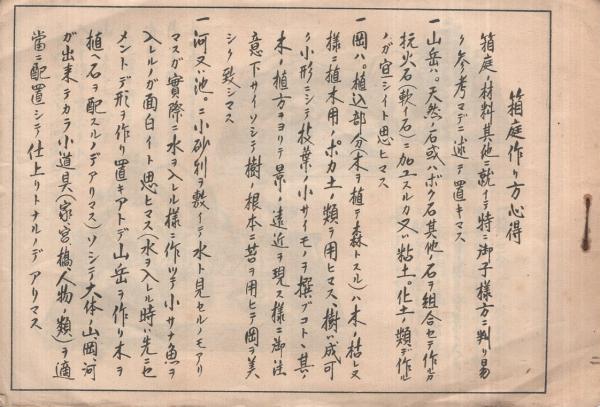 箱庭作り方心得
箱庭ノ材料其他ニ就イテ特ニ御子様方ニ判リ易
ク参考マデニ述テ置キマス
一山岳ハ。天然ノ石或ハボク石其他ノ石ヲ組合セテ作ルカ
抗火石(軟イ石)ニ加工スルカ又ハ粘土。化土ノ類デ作ル
ノガ宜シイト思ヒマス
一岡ハ。植込部分(木ヲ植テ森トスル)ハ木ノ枯レヌ
様ニ植木用ノポカ土ノ類ヲ用ヒマス、樹ハ成可
ク小形ニシテ枝葉ノ小サイモノヲ撰ブコト、其ノ
木ノ植方ヲヨリテ景ノ遠近ヲ現ス様ニ御注
意下サイソシテ樹ノ根本ニ苔ヲ用ヒテ岡ヲ美
シク致シマス
一河又ハ池。ニ小砂利ヲ敷イテ水ト見セルノモアリ
マスガ實際ニ水ヲ入レル様ニ作ツテ小サナ魚ヲ
入レルノガ面白イト思ヒマス(水ヲ入レル時ハ先ニセ
メントデ形ヲ作リ置キアトデ山岳ヲ作リ木ヲ
植ヘ石ヲ配スルノデアリマス)ソシテ大体ノ山岡河
ガ出来テカラ小道具(家宮橋、人物ノ類)ヲ適
當ニ配置シテ仕上リトナルノデアリマス